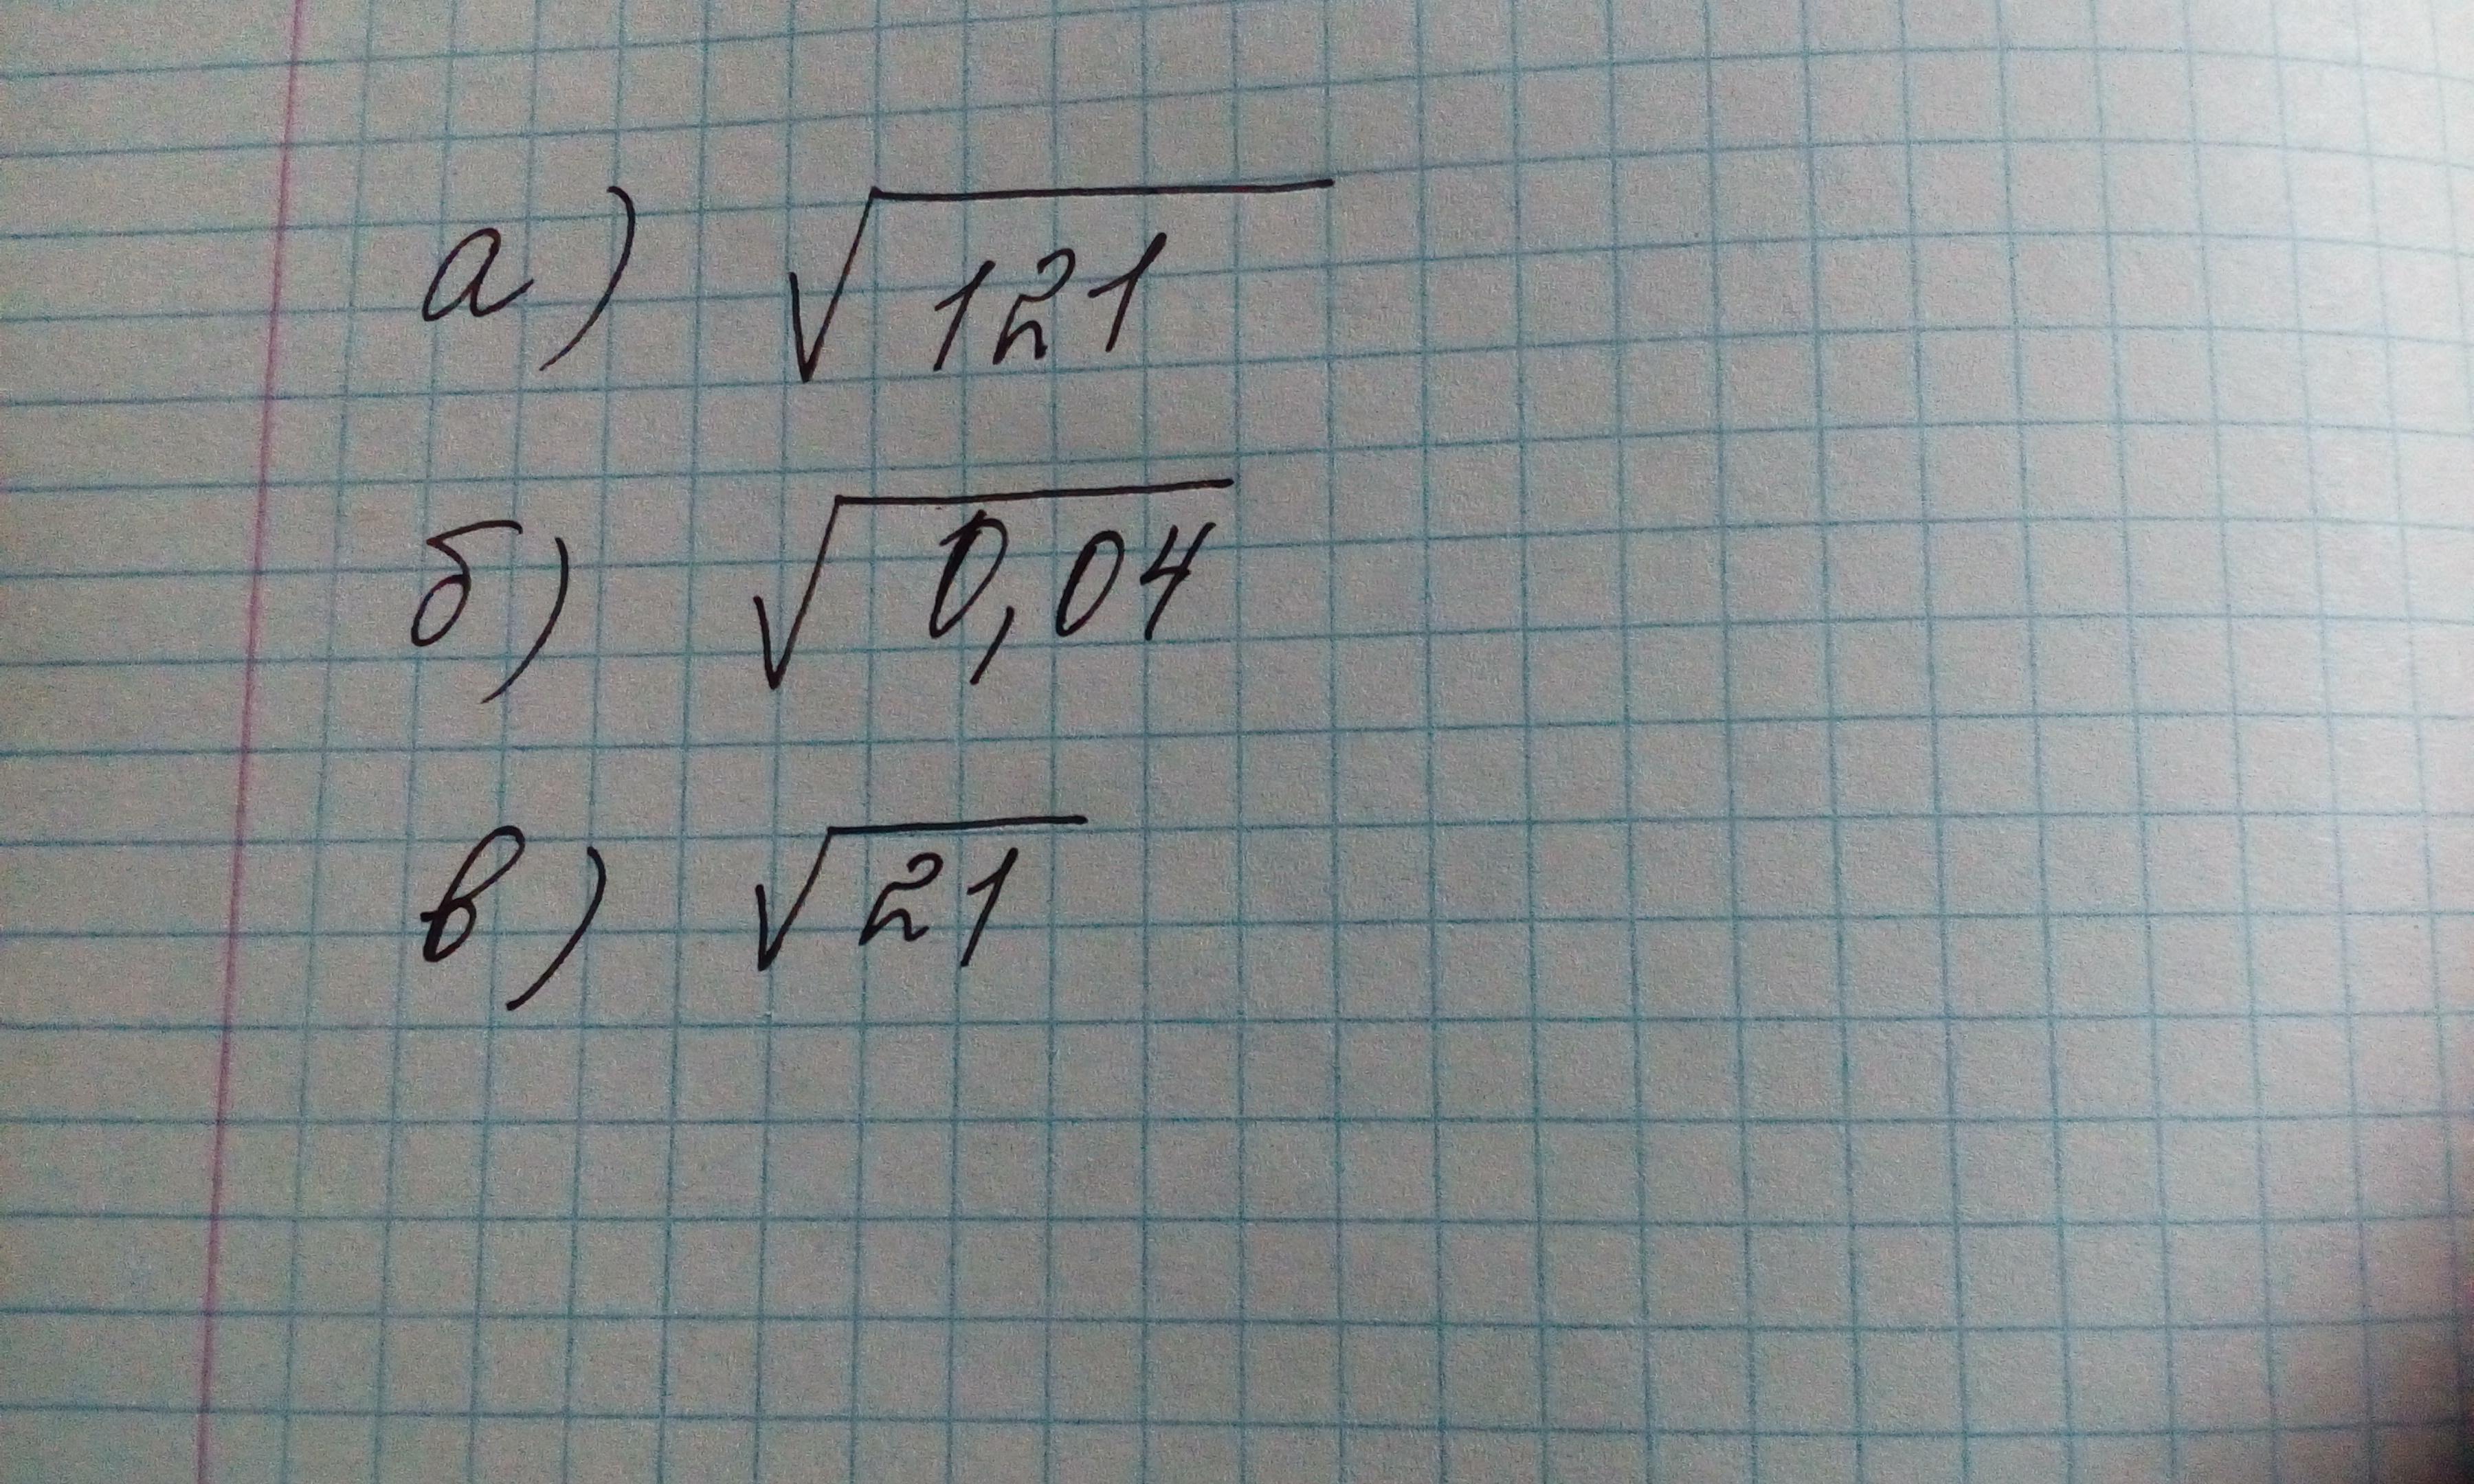 а) √121
б) √0,04
в) √21